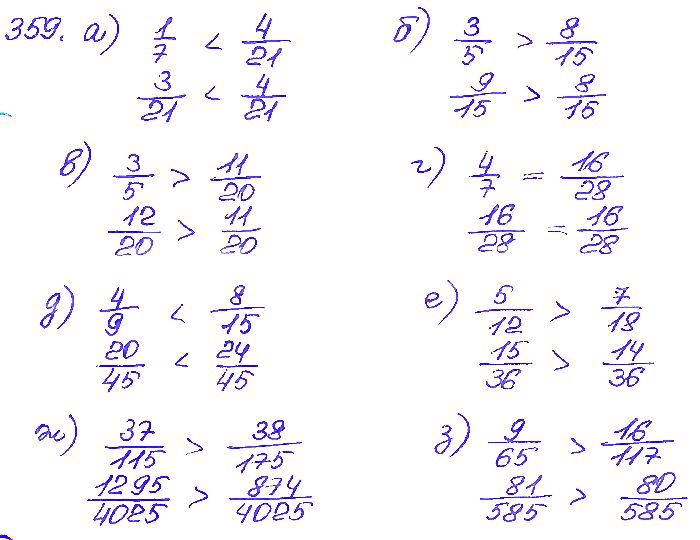 359. а) 1/7 < 4/21
3/21 < 4/21
б) 3/5 > 8/15
9/15 > 8/15
в) 3/5 > 11/20
12/20 > 11/20
г) 4/7 = 16/28
16/28 = 16/28
д) 4/9 < 8/15
20/45 < 24/45
е) 5/12 > 7/18
15/36 > 14/36
ж) 37/115 > 38/175
1295/4025 > 874/4025
з) 9/65 > 16/117
81/585 > 80/585